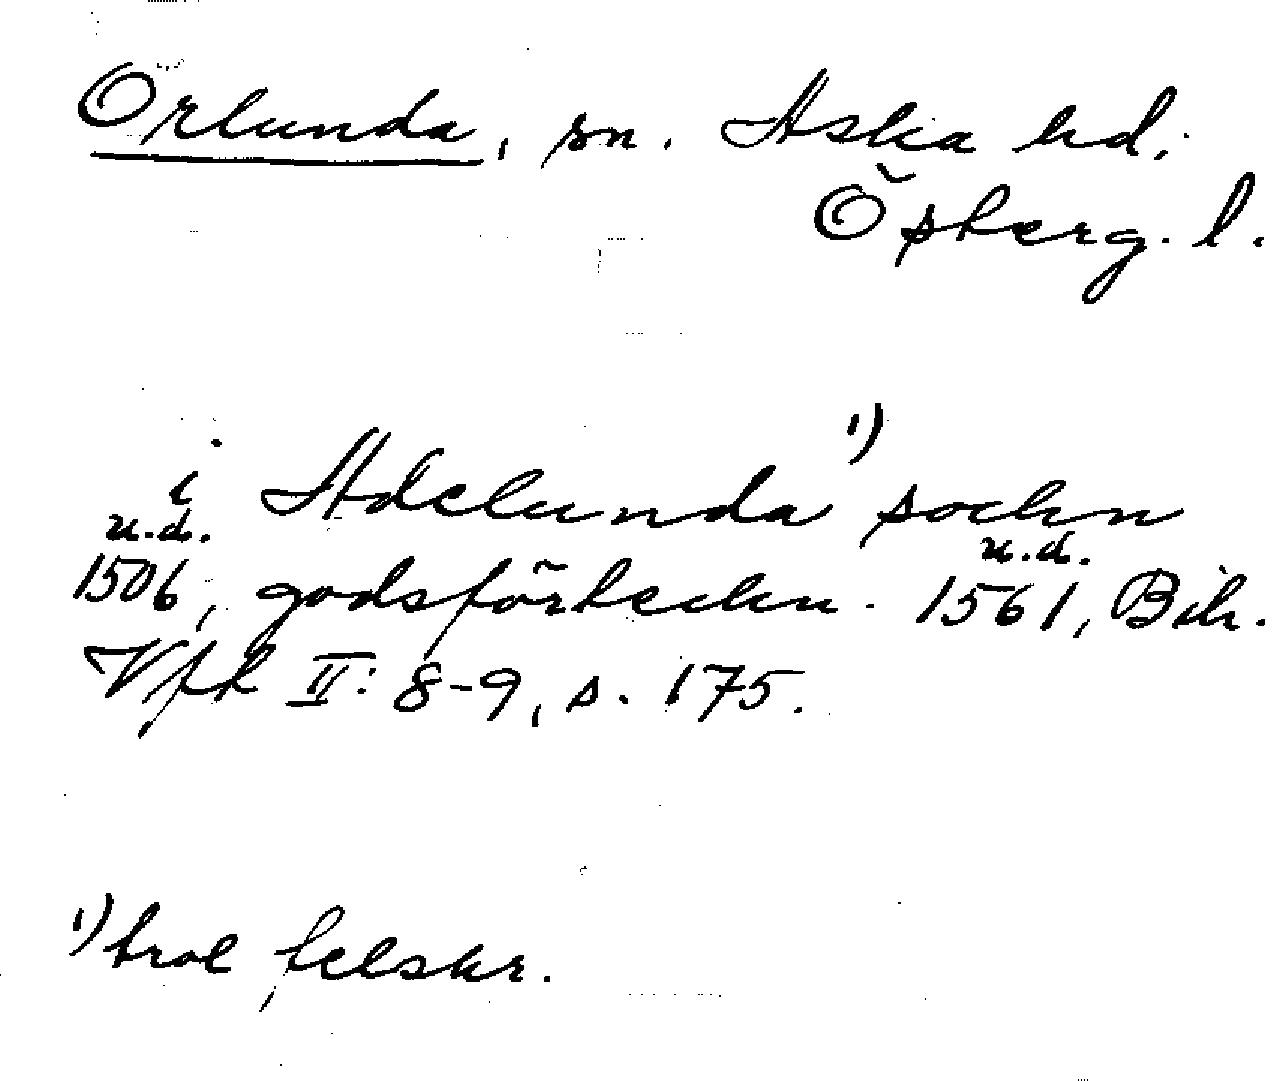 Orlunda, sn. Aska hd.
Österg. l.
i Adelunda 1) sockn
u.d. u.d.
1506, godsförteckn. 1561, Bih.
Vfk II: 8-9, s. 175.
1) trol felskr.